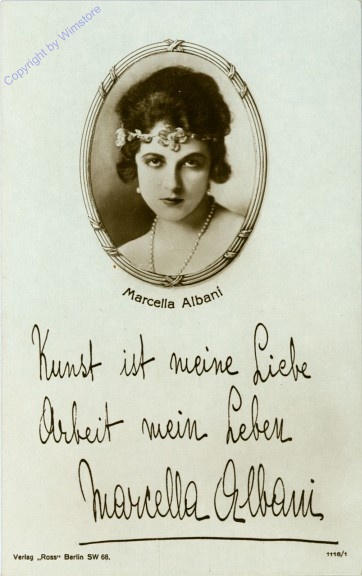 Copyright by Wimstore
Marcella Albani
Kunst ist meine Liebe
Arbeit mein Leben
Marcella Albani
Verlag „Ross“ Berlin SW 68.
1116/1